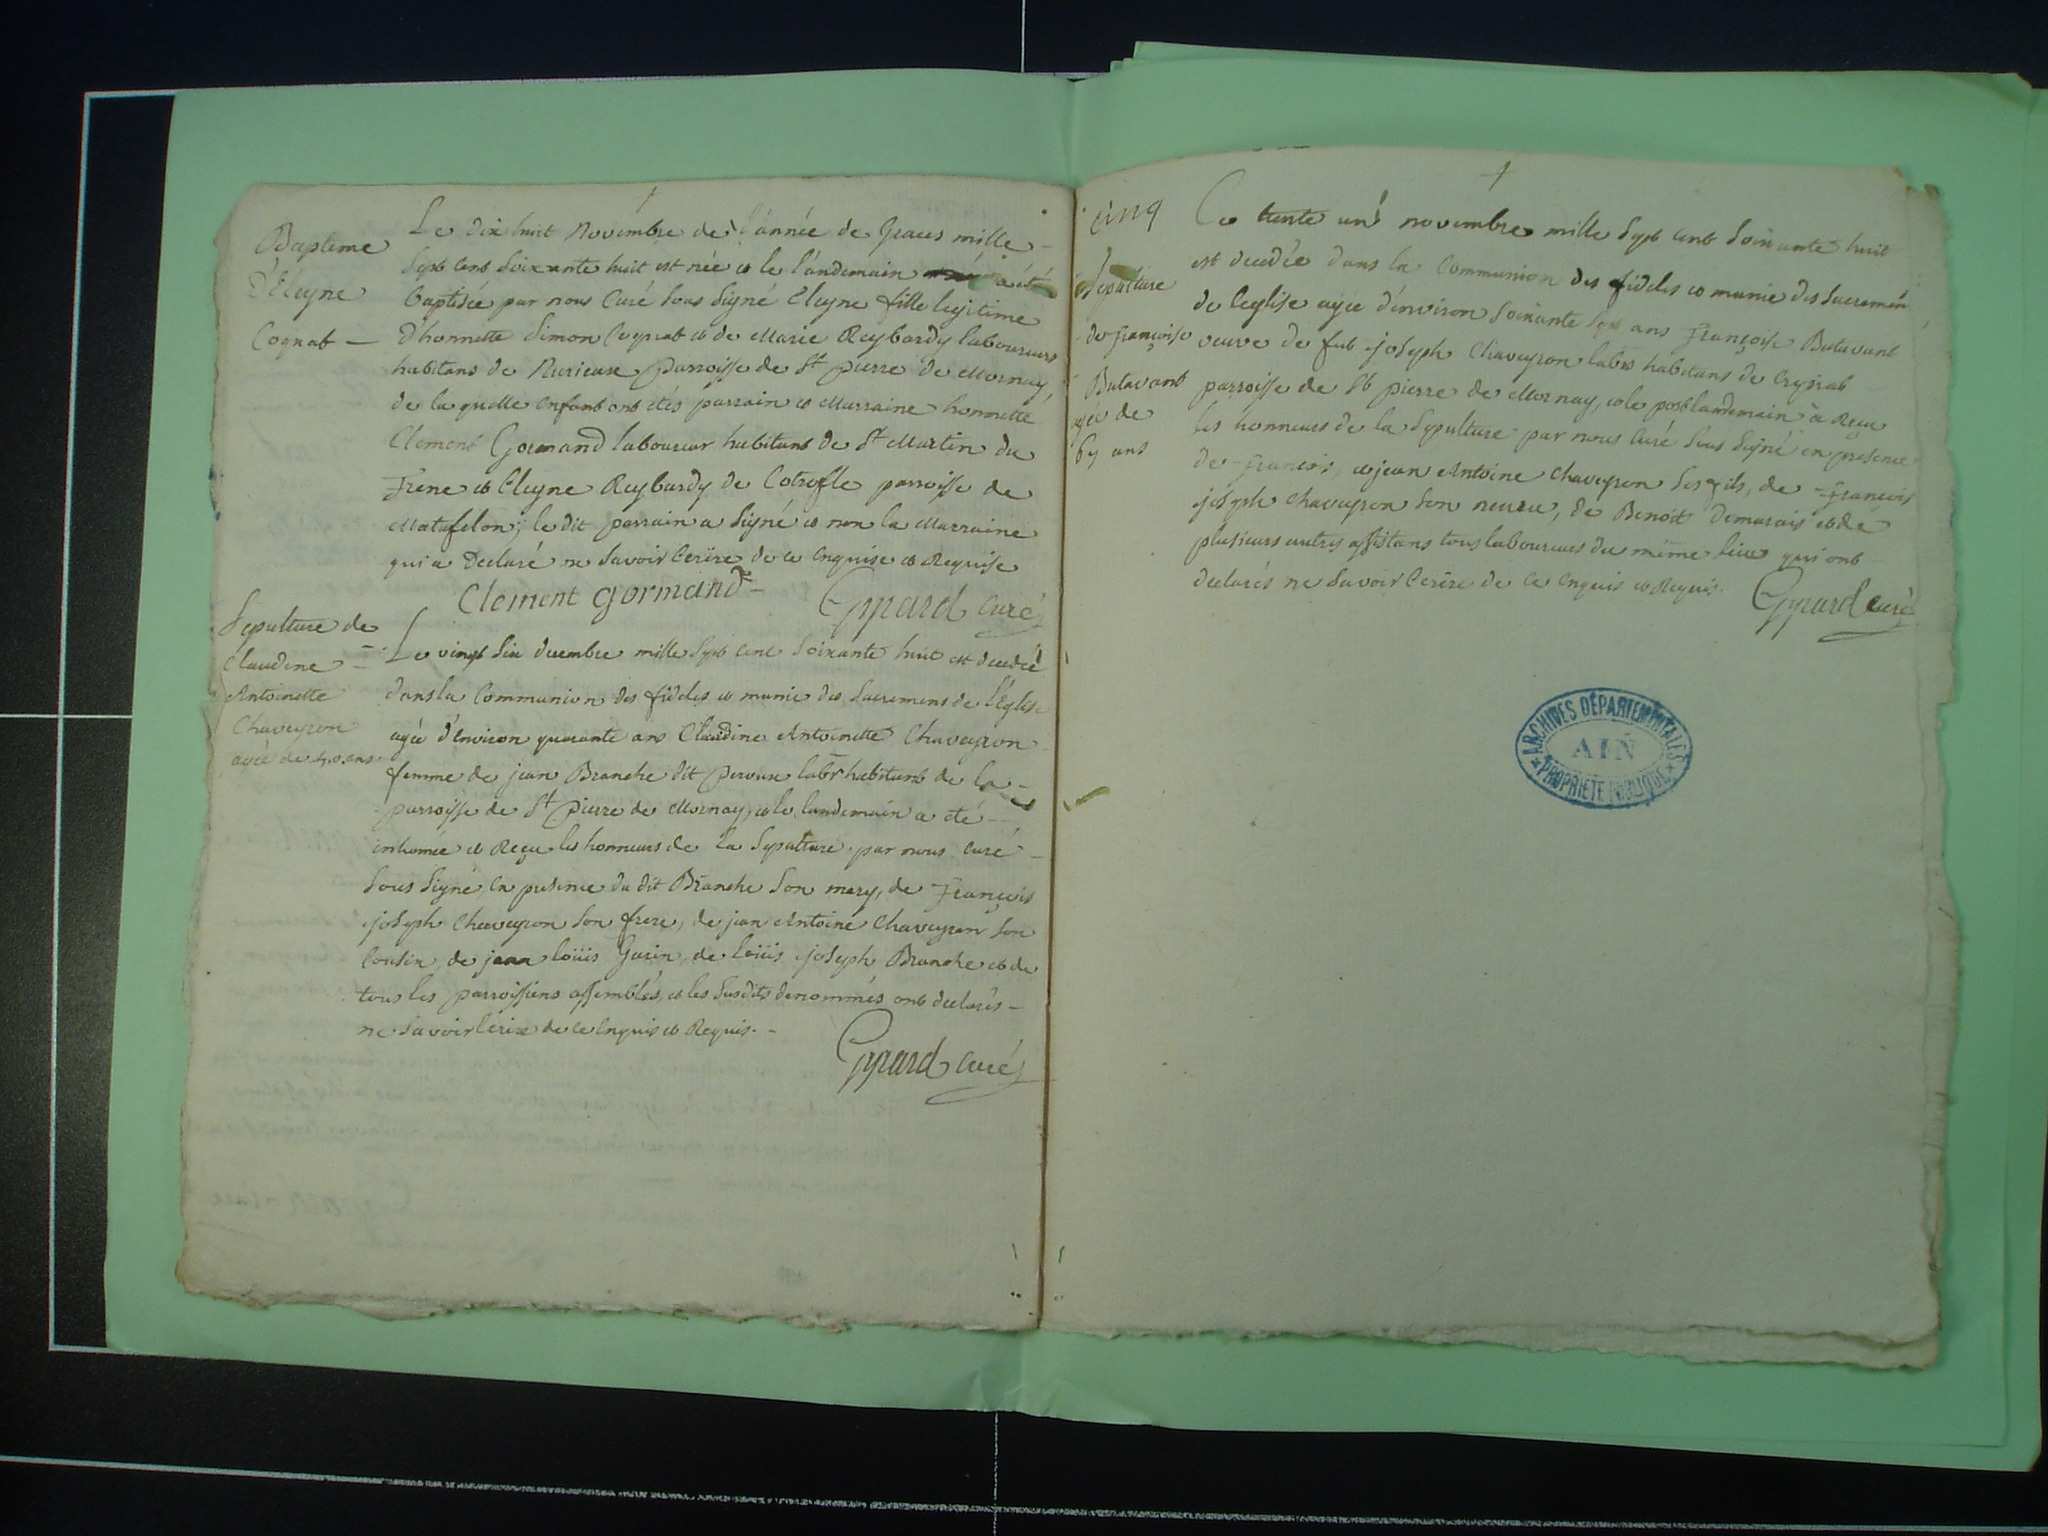 Bapteme
D'Eleyne
Cognat —
Le dix huit Novembre de l'année de Graces mille
Sept cent soixante huit est née et le l'andemain a été
baptisée par nous Curé sous signé Eleyne fille legitime
d'honnette Simon Cognat et de Marie Reybardy laboureurs
habitans de parroisse de St pierre de Mornay
de la quelle enfant ont étés parrain et Marraine honnette
Clement Gormand laboureur habitant de St Martin du
Frene et Eleyne Reybardy de Cotrofle parroisse de
Matafelon; le dit parrain a signé et non la Marraine
qui a Declaré ne savoir Ecrire de ce enquise et Requise
Clement gormand
curé
Sepulture de
Claudine
Antoinette
Chaveyron
agée de 40 ans
Le vingt six decembre mille sept cent soixante huit est decedée
dans la Communion des fideles et munie des Sacremens de l'Eglise
agée d'environ quarante ans Claudine Antoinette Chaveyron
femme de jean Branche dit labr habitant de la
parroisse de St pierre de Mornay, et le landemain a été
inhumée et Reçu les honneurs de la Sepulture par nous curé
sous signé en presence du dit Branche son mary, de François
joseph Chaveyron son frere, de jean Antoine Chaveyron son
Cousin, de jean loüis Gurin, de loüis joseph Branche et de
tous les parroissiens assemblés, et les susdits denommés ont declarés
ne savoir Ecrire de ce enquis et Requis.
curé
cinq
Sepulture
de Françoise
Butavant
agée de
67 ans
Ce trente un novembre mille sept cent soixante huit
est decedée dans la Communion des fideles et munie des Sacremens
de l'eglise agée d'environ soixante sept ans Françoise Butavant
veuve de fut joseph Chaveyron labrs habitans de Crysiat
parroisse de St pierre de Mornay, et le post landemain à Reçu
les honneurs de la Sepulture par nous Curé sous signé en presence
de François, et jean Antoine Chaveyron ses fils, de François
joseph Chaveyron son neveu, de Benoit Demarais et de
plusieurs autres assistans tous laboureurs du même lieu qui ont
declarés ne savoir Ecrire de ce enquis et Requis.
curé
ARCHIVES DÉPARTEMENTALES
AIN
PROPRIÉTÉ PUBLIQUE